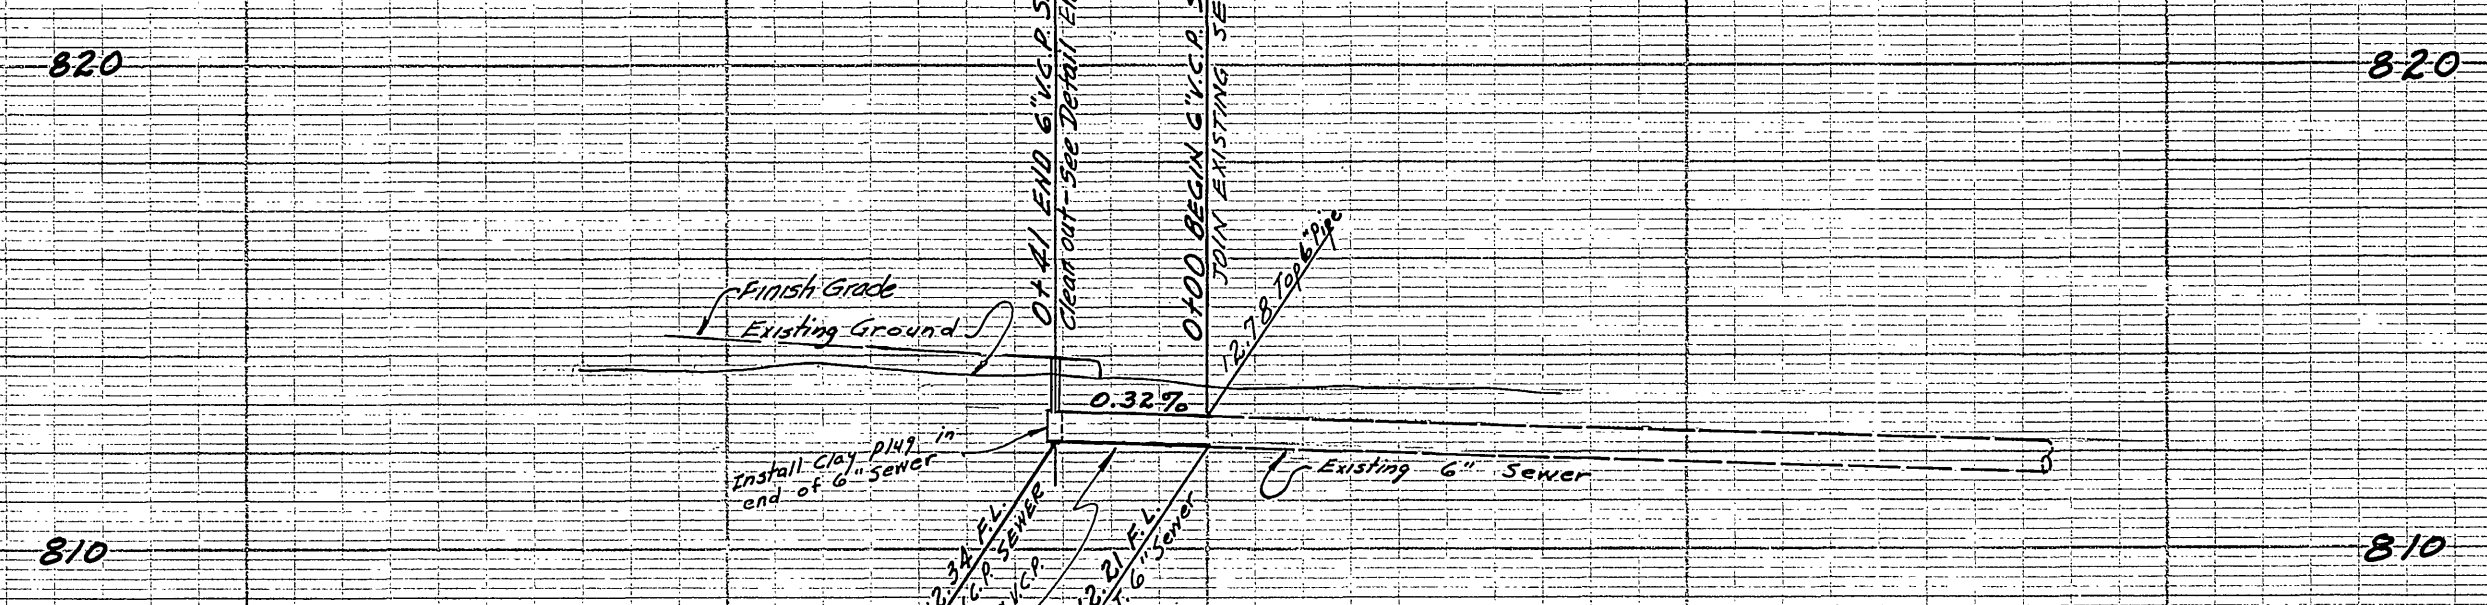 820
820
0+41 END 6"V.C.P.
Clean out-See Detail
0+00 BEGIN 6"V.C.P.
JOIN EXISTING
12.78 Top 6"Pipe
Finish Grade
Existing Ground
0.32%
Install Clay plug in
end of 6" sewer
Existing 6" Sewer
2.34 F.L.
C.P. SEWER
V.C.P.
2.21 F.L.
6" Sewer
810
810